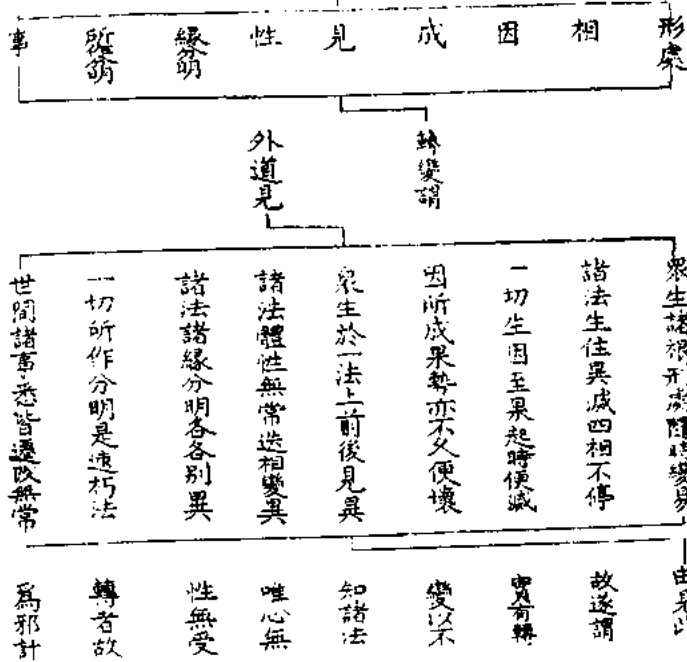 形處
相
因
成
見
性
緣分明
所作分明
事
轉變謂
外道見
衆生諸根形處隨時變易
諸法生住異滅四相不停
一切生因至果起時便滅
因所成果勢亦不久便壞
衆生於一法上前後見異
諸法體性無常迭相變異
諸法諸緣分明各各別異
一切所作分明是速朽法
世間諸事悉皆遷改無常
由見此
故遂謂
實有轉
變以不
知諸法
唯心無
性無受
轉者故
爲邪計